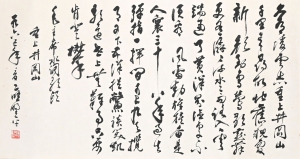 久有凌云志重上井冈山
千里来寻故地旧貌变
新颜到处莺歌燕舞
更有潺潺流水高路入云
端过了黄洋界险处不
须看风雷动旌旗奋是
人寰三十八年过去
弹指一挥间可上九天揽
月可下五洋捉鳖谈笑凯
歌还世上无难事只要
肯登攀
毛主席水调歌头
重上井冈山